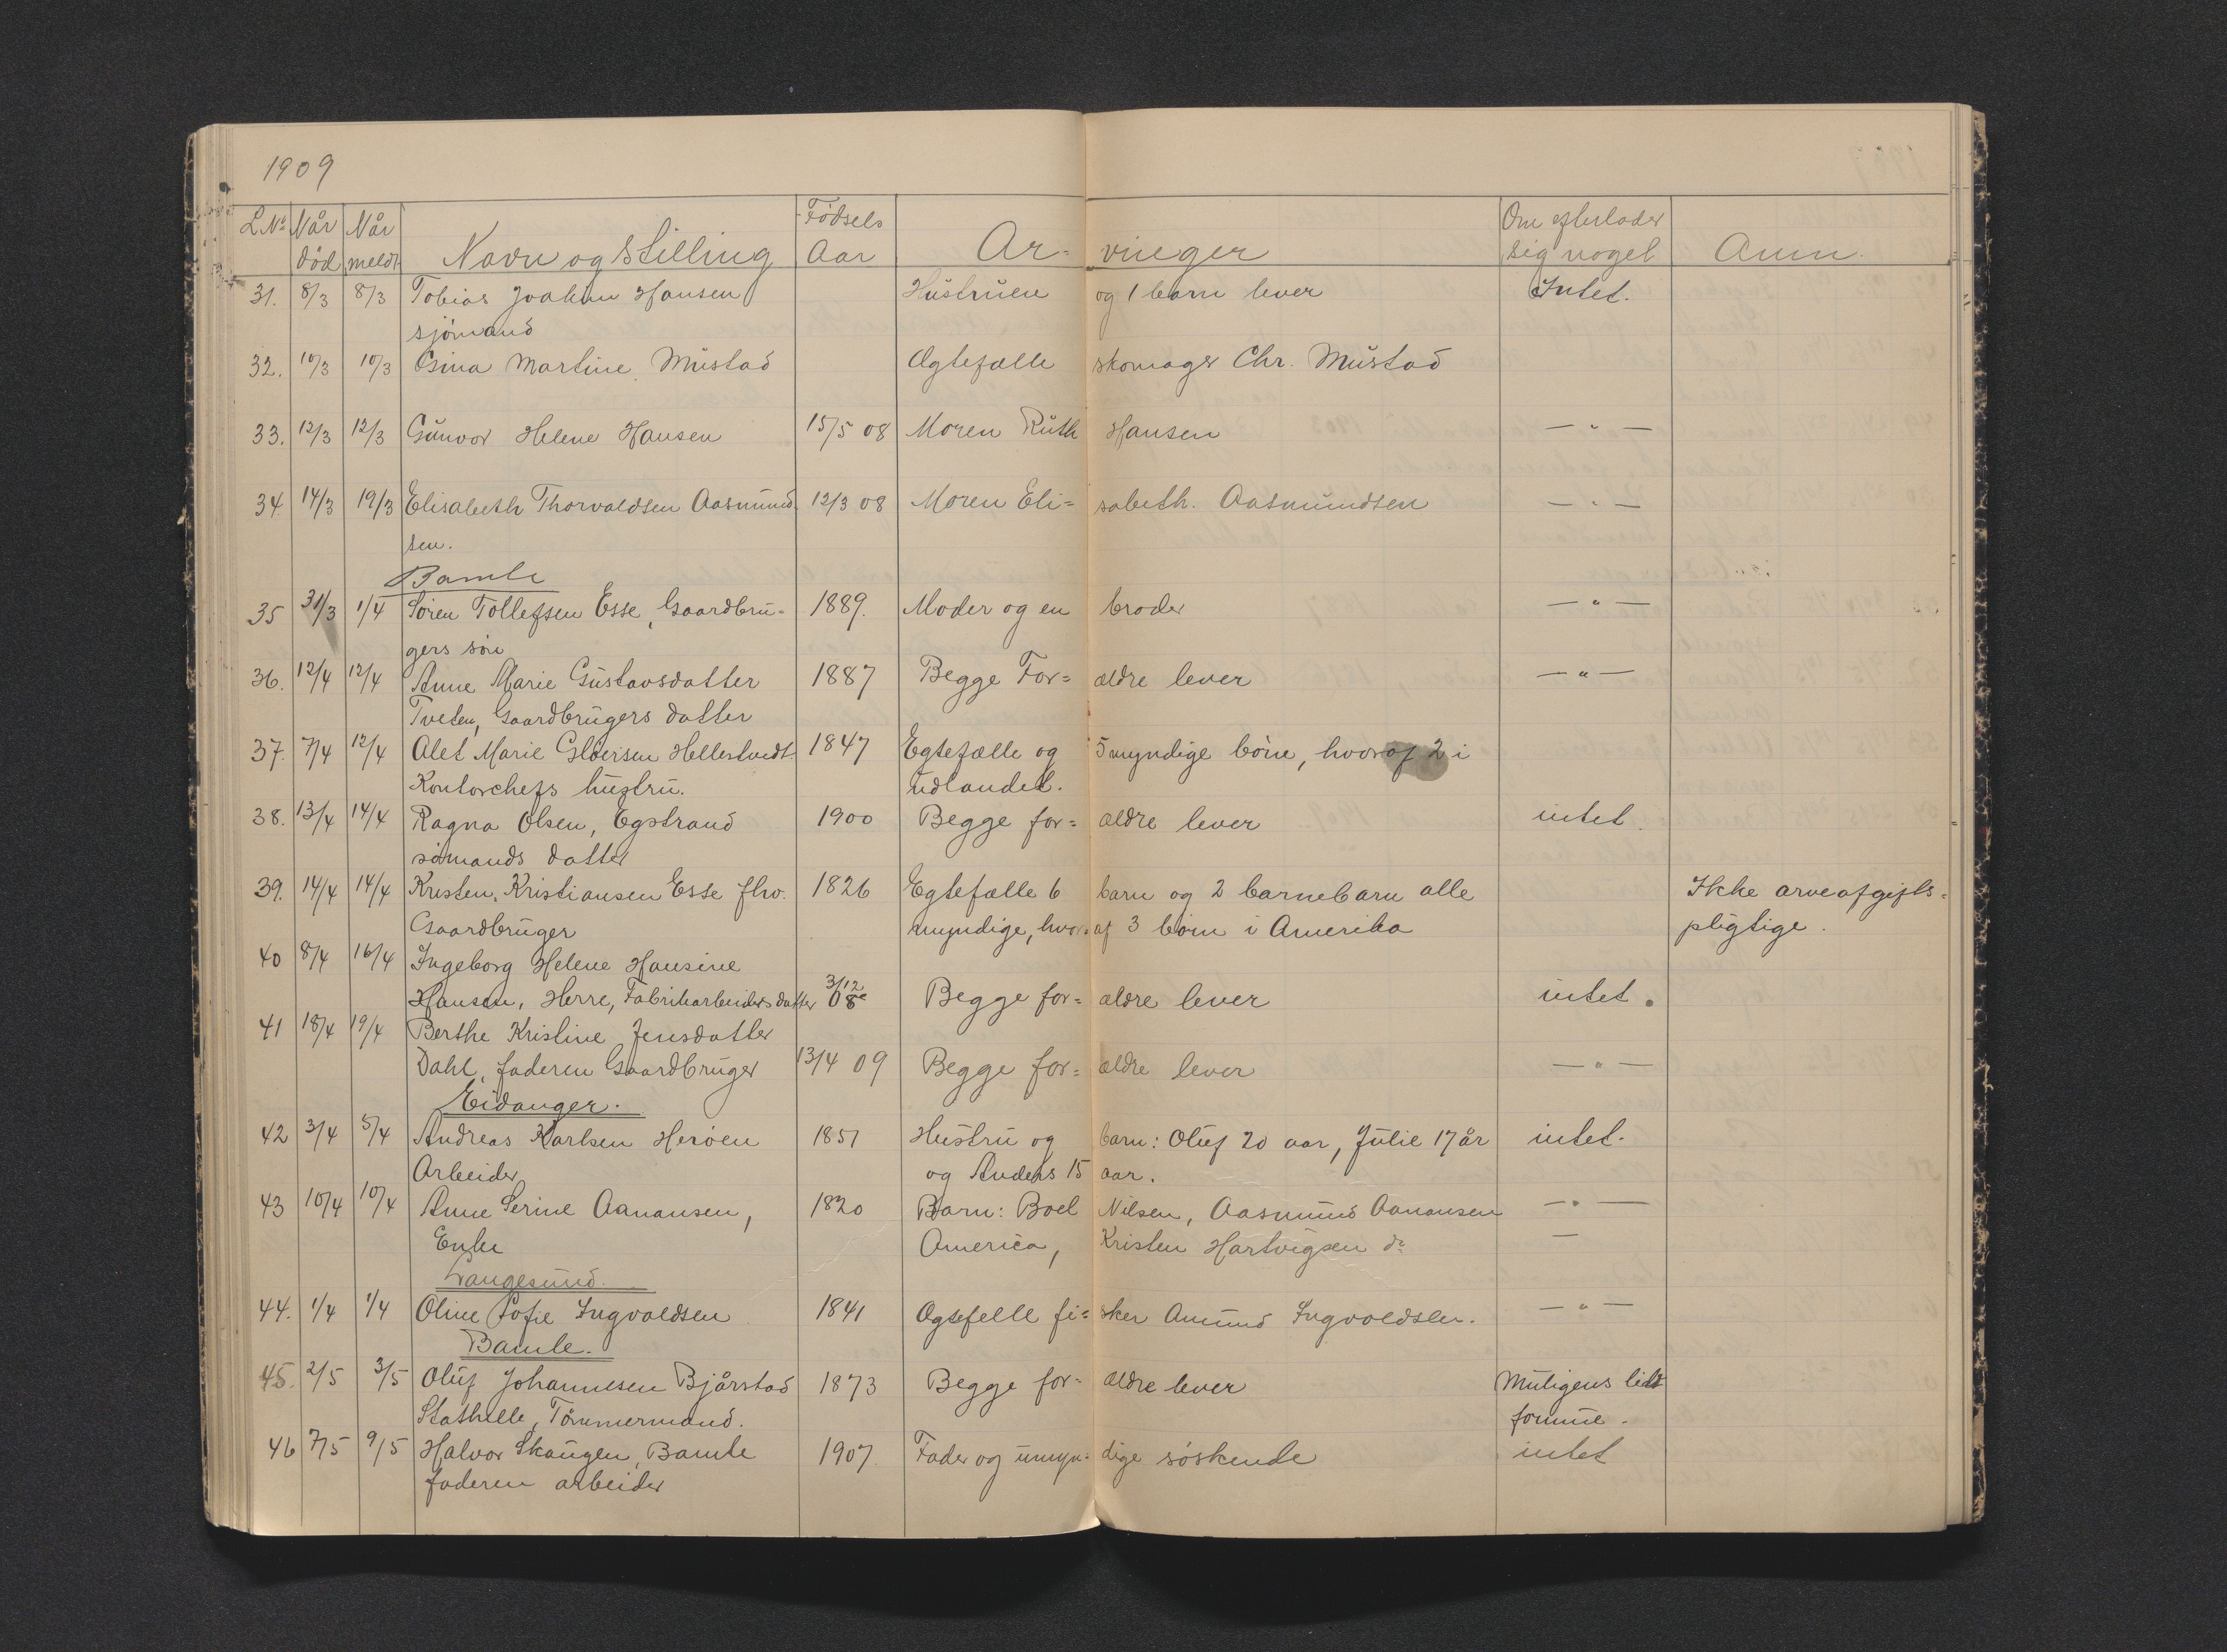 1909
L.Nº Når død Når meldt Navn og Stilling Fødsels Aar Ar- vinger Om efterlader sig noget Anm.
31. 8/3 8/3 Tobias Joakim Hansen Hustruen og 1 barn lever Intet.
sjömand
32. 10/3 10/3 Gina Martine Mustad Ægtefælle skomager Chr. Mustad
33. 12/3 12/3 Gunvor Helene Hansen 15/5 08 Moren Ruth Hansen — " —
34. 14/3 19/3 Elisabeth Thorvaldsen Aasmund- 12/3 08 Moren Eli= sabeth. Aasmundsen — " —
sen.
Bamle
35 31/3 1/4 Sören Tollefsen Esse, Gaardbru- 1889. Moder og en broder — " —
gers sön
36. 12/4 12/4 Anne Marie Gustavsdatter 1887 Begge For= ældre lever — " —
Tveten, Gaardbrugers datter
37. 7/4 12/4 Alet Marie Glöersen Hellestvedt 1847 Egtefælle og 5 myndige börn, hvoraf 2 i
Kontorchefs hustru. udlandet.
38. 13/4 14/4 Ragna Olsen, Egstrand 1900 Begge for= ældre lever intet.
sömands datter
39. 14/4 14/4 Kristen Kristiansen Esse fhv. 1826 Egtefælle 6 barn og 2 barnebarn alle Ikke arveafgifts-
Gaardbruger myndige, hvor- af 3 börn i Amerika pligtige.
40 8/4 16/4 Ingeborg Helene Hansine
Hansen, Herre, Fabrikarbeiders datter 3/12 08 Begge for= ældre lever intet.
41 18/4 19/4 Berthe Kristine Jensdatter
Dahl, faderen Gaardbruger 13/4 09 Begge for= ældre lever — " —
Eidanger.
42 3/4 5/4 Andreas Karlsen Heröen 1851 Hustru og barn: Oluf 20 aar, Julie 17 år intet.
Arbeider og Anders 15 aar.
43 10/4 10/4 Anne Serine Aanansen, 1820 Barn: Boel Nilsen, Aasmund Aanansen — " —
Enke America, Kristen Hartvigsen dº —
Langesund.
44. 1/4 1/4 Oline Sofie Ingvaldsen 1841 Ægtefelle fi= sker Amund Ingvoldsen. — " —
Bamle.
45. 2/5 3/5 Oluf Johannesen Bjårstad 1873 Begge for- ældre lever Muligens lidt
Stathelle, Tömmermand. formue.
46 7/5 9/5 Halvor Skaugen, Bamle 1907. Fader og umyn- dige söskende intet
faderen arbeider